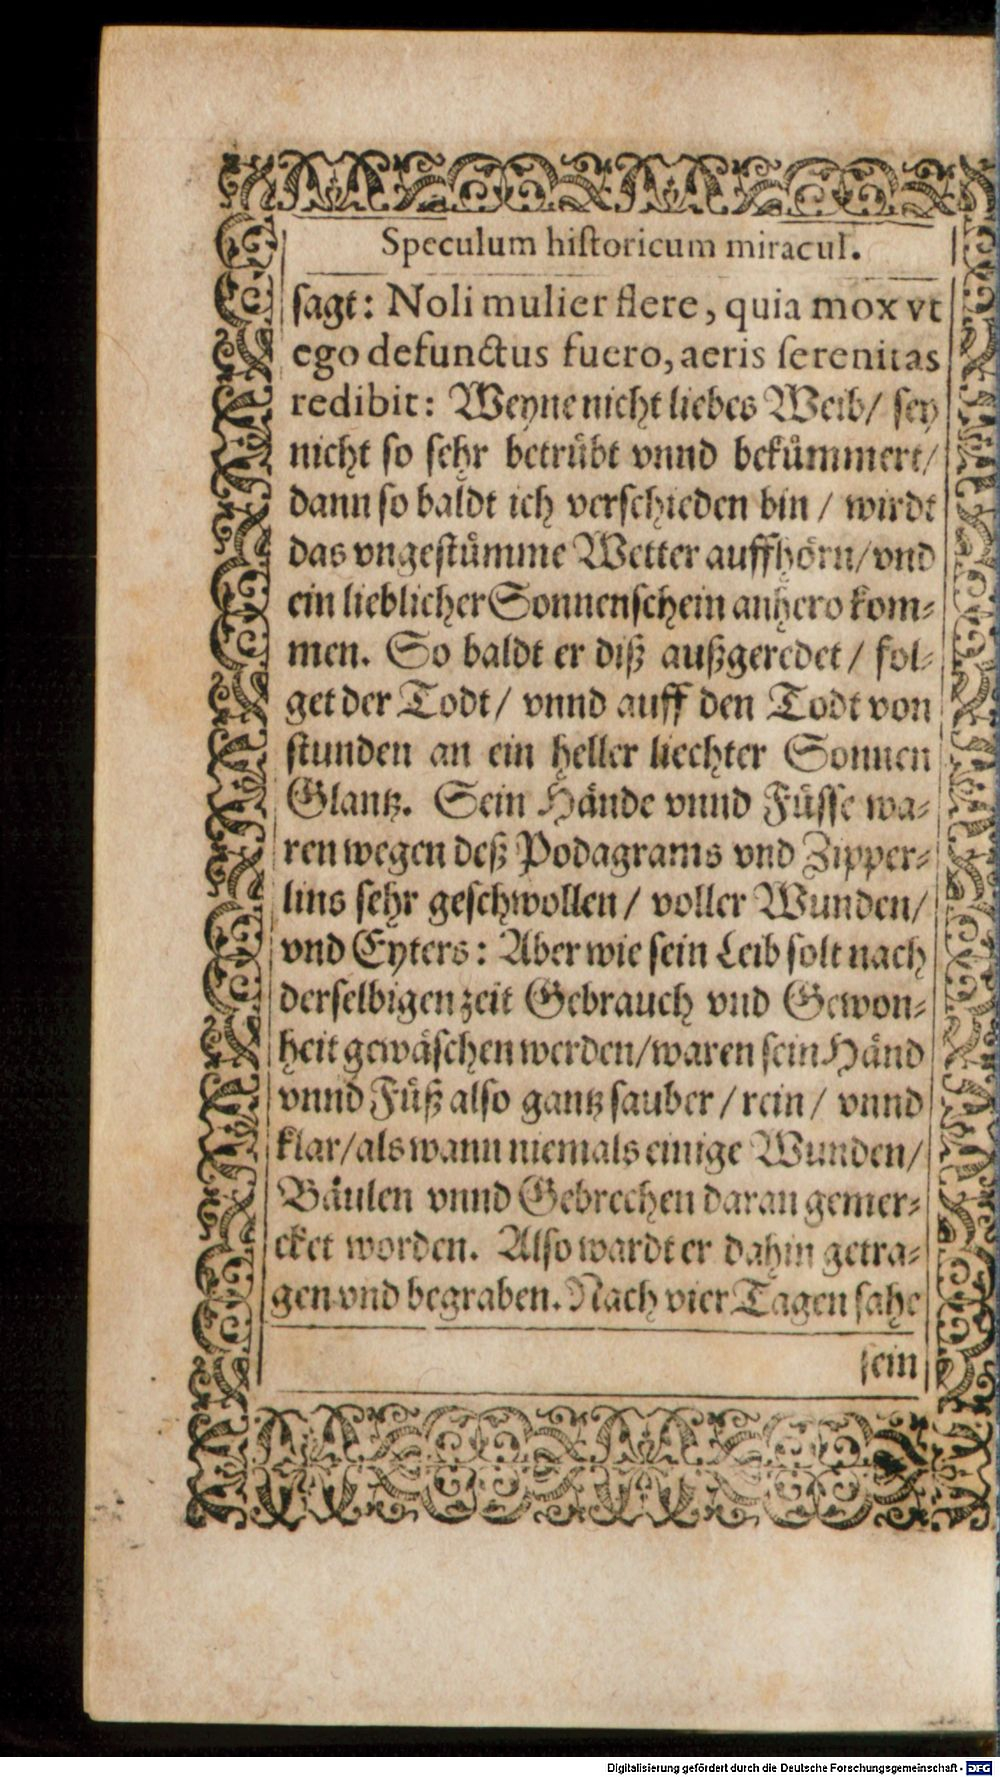 Speculum hiſtoricum miracul.
ſagt: Noli mulier flere, quia mox vt
ego defunctus fuero, aeris ſerenitas
redibit: Weyne nicht liebes Weib/ ſey
nicht ſo ſehr betruͤbt vnnd bekuͤmmert/
dann ſo baldt ich verſchieden bin / wirdt
das vngeſtuͤmme Wetter auffhoͤrn/ vnd
ein lieblicher Sonnenſchein anhero kom⸗
men. So baldt er diß außgeredet / fol⸗
get der Todt/ vnnd auff den Todt von
ſtunden an ein heller liechter Sonnen
Glantz. Sein Haͤnde vnnd Fuͤſſe wa⸗
ren wegen deß Podagrams vnd Zipper⸗
lins ſehr geſchwollen / voller Wunden/
vnd Eyters: Aber wie ſein Leib ſolt nach
derſelbigen zeit Gebrauch vnd Gewon⸗
heit gewaͤſchen werden/ waren ſein Haͤnd
vnnd Fuͤß alſo gantz ſauber / rein / vnnd
klar/ als wann niemals einige Wunden/
Baͤulen vnnd Gebrechen daran gemer⸗
cket worden. Alſo wardt er dahin getra⸗
gen vnd begraben. Nach vier Tagen ſahe
ſein
Digitalisierung gefördert durch die Deutsche Forschungsgemeinschaft - DFG